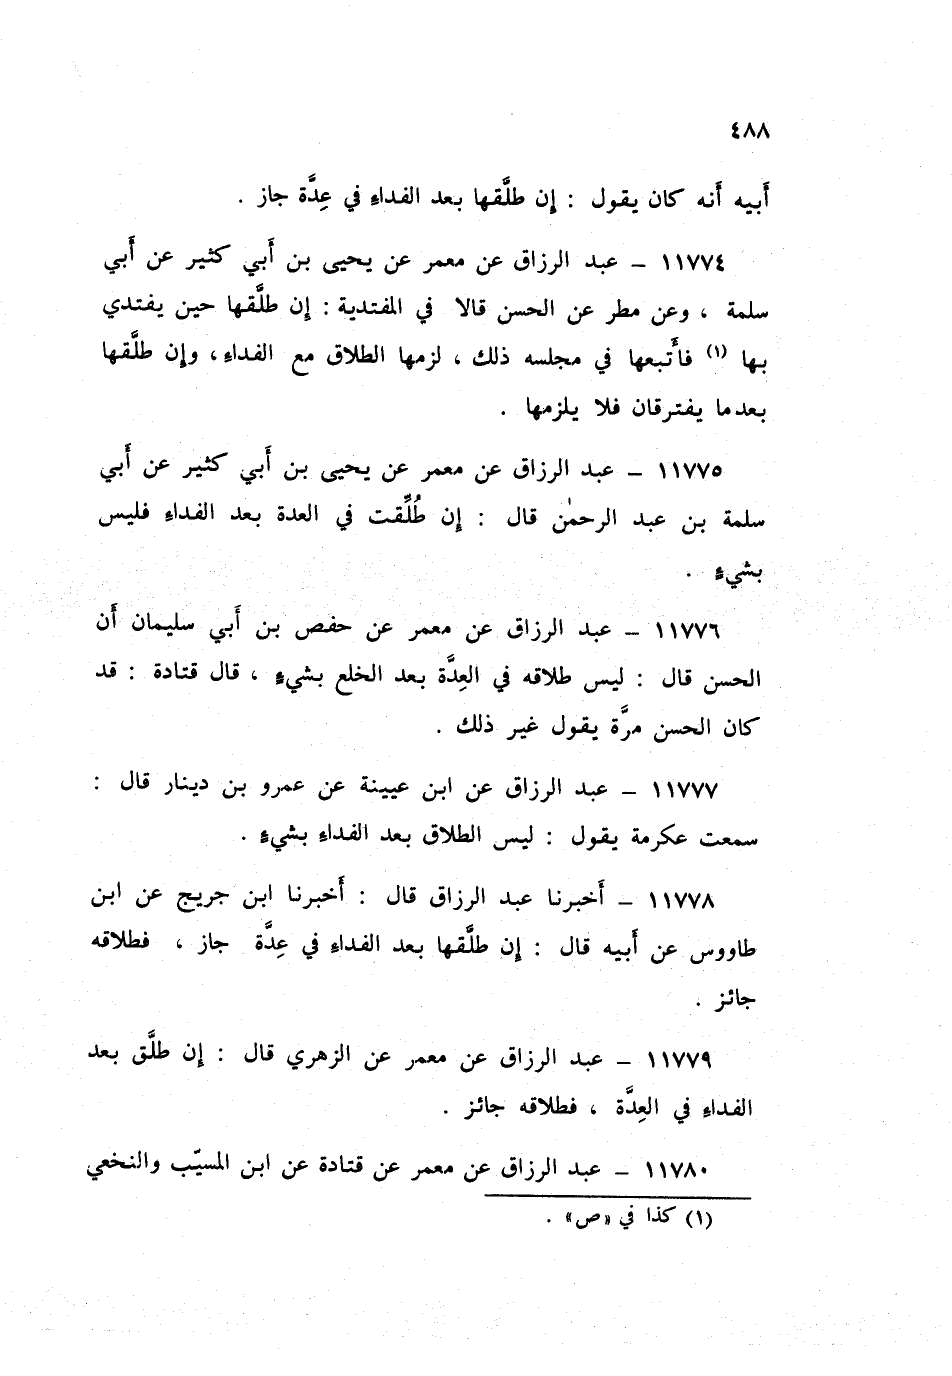 ٤٨٨
أَبيه أَنه كان يقول : إن طلَّقها بعد الفداءِ في عِدَّة جاز .
١١٧٧٤ – عبد الرزاق عن معمر عن يحيى بن أَبي كثير عن أَبي
سلمة ، وعن مطر عن الحسن قالا في المفتدية : إن طلَّقها حين يفتدي
بها (١) فأَتبعها في مجلسه ذلك ، لزمها الطلاق مع الفداءِ، وإن طلَّقها
بعدما يفترقان فلا يلزمها .
١١٧٧٥ – عبد الرزاق عن معمر عن يحيى بن أَبي كثير عن أَبي
سلمة بن عبد الرحمٰن قال : إن طُلِّقت في العدة بعد الفداءِ فليس
بشيءٍ .
١١٧٧٦ – عبد الرزاق عن معمر عن حفص بن أَبي سليمان أَن
الحسن قال : ليس طلاقه في العِدَّة بعد الخلع بشيءٍ ، قال قتادة : قد
كان الحسن مرَّة يقول غير ذلك .
١١٧٧٧ – عبد الرزاق عن ابن عيينة عن عمرو بن دينار قال :
سمعت عكرمة يقول : ليس الطلاق بعد الفداءِ بشيءٍ .
١١٧٧٨ – أَخبرنا عبد الرزاق قال : أَخبرنا ابن جريج عن ابن
طاووس عن أَبيه قال : إن طلَّقها بعد الفداءِ في عِدَّة جاز ، فطلاقه
جائز .
١١٧٧٩ – عبد الرزاق عن معمر عن الزهري قال : إن طلَّق بعد
الفداءِ في العِدَّة ، فطلاقه جائز .
١١٧٨٠ – عبد الرزاق عن معمر عن قتادة عن ابن المسيّب والنخعي
(١) كذا في «ص» .